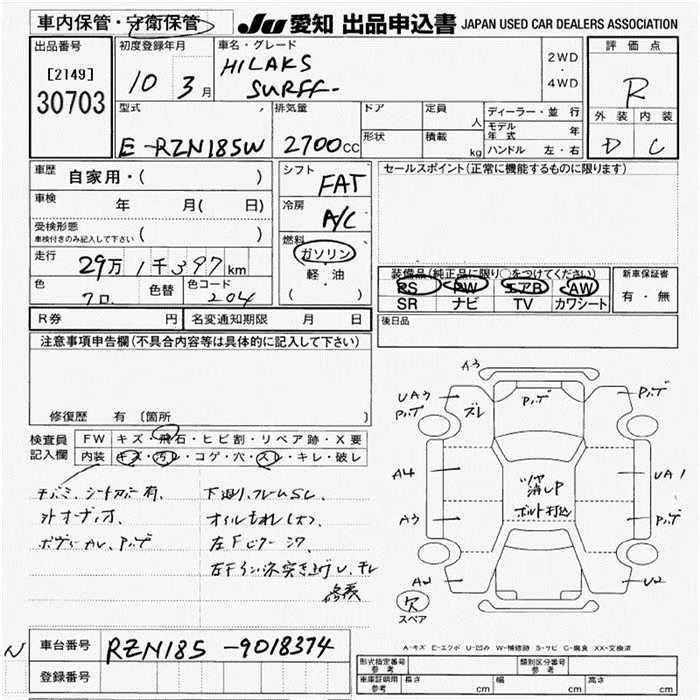 車内保管・守衛保管
JU 愛知 出品申込書 JAPAN USED CAR DEALERS ASSOCIATION
出品番号
[2149]
30703
初度登録年月
10 3 月
車名・グレード
HILAKS
SURFF-
2WD
・
4WD
評価点
R
外装 内装
D C
型式
E-RZN185W
排気量
2700cc
ドア
形状
定員 人
積載 kg
ディーラー・並行
モデル年式 年
ハンドル 左・右
車歴 自家用・( )
車検 年 月( 日)
受検形態
車検付きのみ記入して下さい ( )
走行
29万1千397km
色 クロ 色替 色コード 204
シフト
FAT
冷房
A/C
燃料
ガソリン
軽・油
( )
セールスポイント(正常に機能するものに限ります)
装備品(純正品に限り○をつけてください)
PS PW エアB AW
SR ナビ TV カワシート
新車保証書
有・無
R券 円 名変通知期限 月 日
後日品
注意事項申告欄(不具合内容等は具体的に記入して下さい)
修復歴 有 〔箇所
検査員
記入欄
FW キズ・飛石・ヒビ割・リペア跡・X要
内装 キズ・汚レ・コゲ・穴・スレ・キレ・破レ
シートカバー有、
外オーディオ、
下廻り、フレームSし
修復
Aウ
UAウ
ズレ
A4
Aウ
UA1
ツヤ
消UP
ボルト打込
U2
欠
スペア
A-キズ E-エクボ U-凹み W-補修跡 S-サビ C-腐食 XX-交換済
車台番号 RZN185-9018374
登録番号
型式指定番号
参考
類別区分番号
参考
車庫証明用
参考
長さ cm 幅 cm 高さ cm